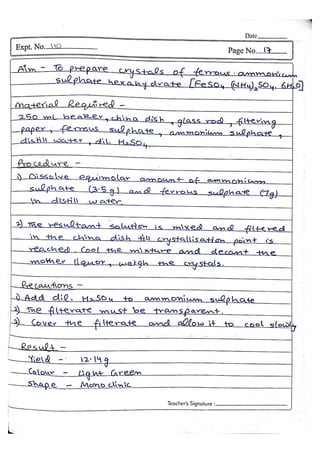 Date
Expt. No. 10
Page No. 17
Aim - To prepare crystals of ferrous ammonium
sulphate hexahydrate [FeSO4 (NH4)2SO4. 6H2O]
Material Required -
250 mL beaker, china dish, glass rod, filtering
paper, ferrous sulphate, ammonium sulphate,
distill water, dil. H2SO4.
Procedure -
1) Dissolve equimolar amount of ammonium
sulphate (3.5g) and ferrous sulphate (7g)
in distill water.
2) The resultant solution is mixed and filtered
in the china dish till crystallisation point is
reached. Cool the mixture and decant the
mother liquor, weigh the crystals.
Precautions -
1) Add dil. H2SO4 to ammonium sulphate
2) The filterate must be transparent.
3) Cover the filterate and allow it to cool slowly
Result -
Yield - 12.14g
Colour - Light Green
Shape - Monoclinic
Teacher's Signature :